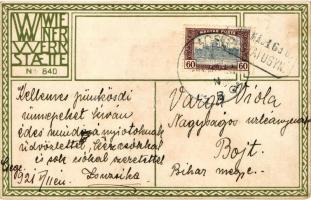 WIENER
WERK
STÆTTE
No 840
MAGYAR POSTA
60 60
Kellemes pünkösdi
ünnepeket kíván
édes mindnyájotoknak
üdvözlettel, kézcsókkal
és sok csókkal szeretettel
921 V/11én Zsuzsika
Varga Viola
Nagyságos urleánynak
Bojt
Bihar megye.